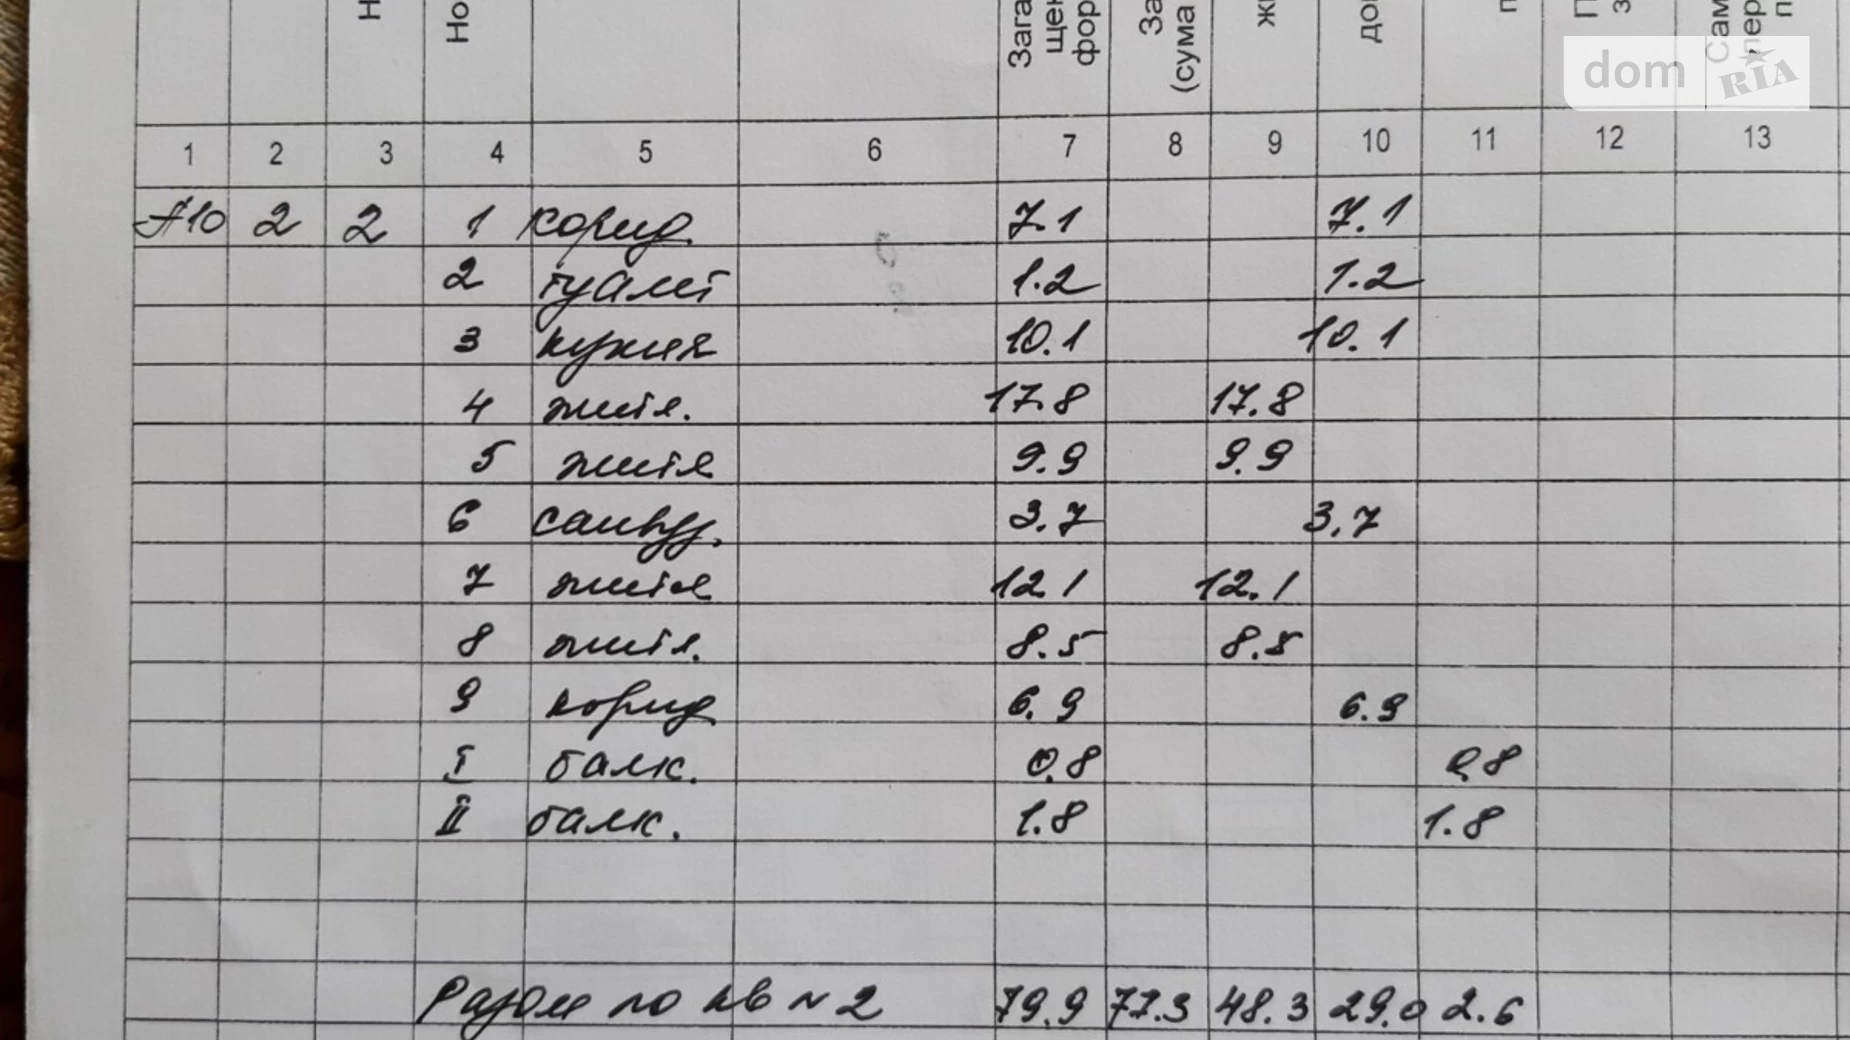 Н Но Зага За жи доп п П Сам
щен (сума з пер
фор п
dom RIA
1 2 3 4 5 6 7 8 9 10 11 12 13
А10 2 2 1 корид. 7.1 7.1
2 туалет 1.2 1.2
3 кухня 10.1 10.1
4 житл. 17.8 17.8
5 житл 9.9 9.9
6 санвуз. 3.7 3.7
7 житл 12.1 12.1
8 житл. 8.5 8.5
9 корид 6.9 6.9
I балк. 0.8 0.8
II балк. 1.8 1.8
Разом по кв № 2 79.9 77.3 48.3 29.0 2.6